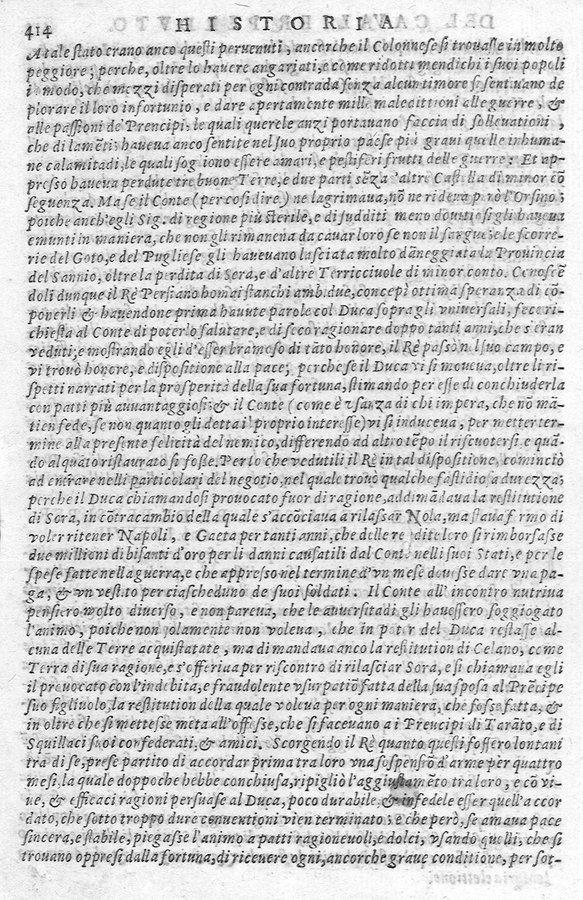 414 HISTORIA
A tale stato erano anco questi pervenuti, ancorche il Colonnese si trouasse in molto
peggiore; perche, oltre lo hauere angariati, e come ridotti mendichi i suoi popoli
i modo, che mezzi disperati per ogni contrada sēza alcun timore si sentiuano de
plorare il loro infortunio, e dare apertamente mille maledittioni alle guerre, &
alle passioni de' Prencipi; le quali querele anzi portauano faccia di solleuationi,
che di lamēti: haueua anco sentite nel suo proprio paese più graui quelle inhuma-
ne calamitadi, le quali sogliono essere amari, e pestiferi frutti delle guerre: Et ap-
presso haueua perdute tre buone Terre, e due parti sēza l'altre Castella di minor cō
seguenza. Ma se il Conte (per cosi dire) ne lagrimaua, nō ne rideua però l'Orsino;
poiche anch'egli Sig. di regione più sterile, e di sudditi meno douitiosi gli haueua
emunti in maniera, che non gli rimaneua da cauar loro se non il sangue; e le scorre-
rie del Goto, e del Pugliese gli haueuano lasciata molto dāneggiata la Prouincia
del Sannio, oltre la perdita di Sora, e d'altre Terricciuole di minor conto. Conoscē
doli dunque il Rè Persiano homai stanchi ambidue, concepì ottima speranza di cō-
ponerli & hauendone prima hauute parole col Duca sopra gli vniuersali, fece ri-
chiesta al Conte di poterlo salutare, e di seco ragionare doppo tanti anni, che s'eran
veduti; e mostrando egli d'esser bramoso di tāto honore, il Rè passò nel suo campo, e
vi trouò honore, e dispositione alla pace; perche se il Duca vi si moueua, oltre li ri-
spetti narrati per la prosperità della sua fortuna, stimando per esse di conchiuderla
con patti più auuantaggiosi; & il Conte (come è vsanza di chi impera, che nō mā-
tien fede, se non quanto gli detta il proprio interesse) vi si induceua, per metter ter-
mine alla presente felicità del nemico, differendo ad altro tēpo il riscuotersi, e quā-
do alquāto ristaurato si fosse. Per lo che vedutili il Rè in tal dispositione, cominciò
ad entrare nelli particolari del negotio, nel quale trouò qualche fastidiosa durezza;
perche il Duca chiamandosi prouocato fuor di ragione, addimādaua la restitutione
di Sora, in cōtracambio della quale s'accōciaua a rilassar Nola, ma staua fermo di
voler ritener Napoli, e Gaeta per tanti anni, che delle reditè loro si rimborsasse
due millioni di bisanti d'oro per li danni causatili dal Conte nelli suoi Stati, e per le
spese fatte nella guerra, e che appresso nel termine d'vn mese douesse dare vna pa-
ga, & vn vestito per ciascheduno de suoi soldati. Il Conte all'incontro nutriua
pensiero molto diuerso, e non pareua, che le auuersitadi gli hauessero soggiogato
l'animo, poiche non solamente non voleua, che in poter del Duca restasse al-
cuna delle Terre acquistate, ma dimandaua anco la restitution di Celano, come
Terra di sua ragione, e s'offeriua per riscontro di rilasciar Sora, e si chiamaua egli
il prouocato con l'indebita, e fraudolente vsurpatiō fatta della sua sposa al Prēcipe
suo figliuolo, la restitution della quale voleua per ogni maniera, che fosse fatta, &
in oltre che si mettesse meta all'offese, che si faceuano a i Prencipi di Tarāto, e di
Squillaci suoi confederati, & amici. Scorgendo il Rè quanto questi fossero lontani
tra di se, prese partito di accordar prima tra loro vna sospensiō d'arme per quattro
mesi, la quale doppo che hebbe conchiusa, ripigliò l'aggiustamēto tra loro; e cō vi-
ue, & efficaci ragioni persuase al Duca, poco durabile, & infedele esser quell'accor
dato, che sotto troppo dure conuentioni vien terminato; e che però, se amaua pace
sincera, e stabile, piegasse l'animo a patti ragioneuoli, e dolci, vsando quelli, che si
trouano oppresi dalla fortuna, di riceuere ogni, ancorche graue conditione, per sot-